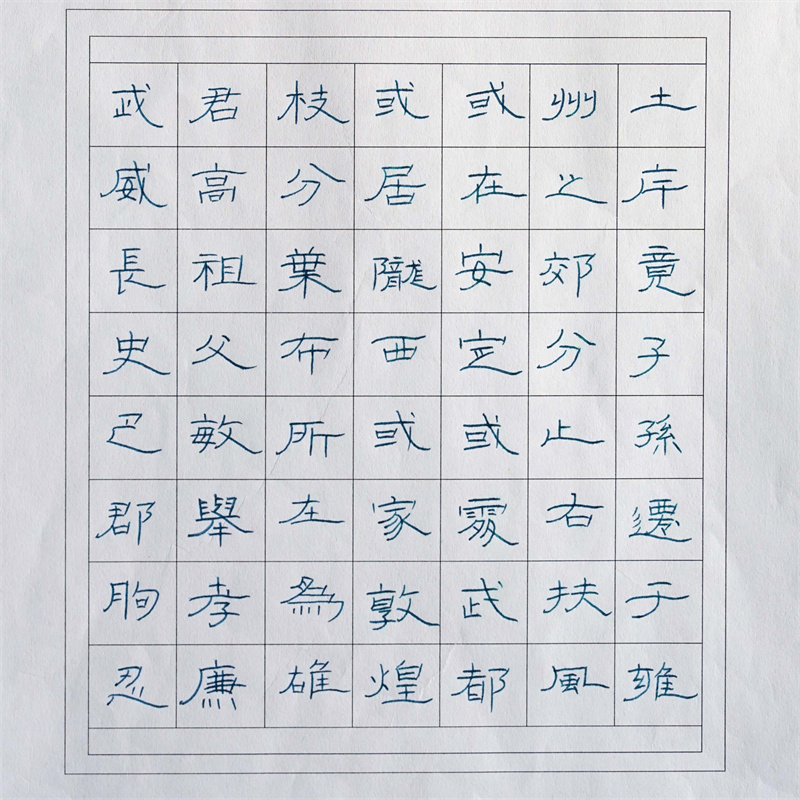 土斥竟子孫遷于雍
州之郊分止右扶風
或在安定或處武都
或居隴西或家敦煌
枝分葉布所在為雄
君高祖父敏舉孝廉
武威長史巴郡朐忍